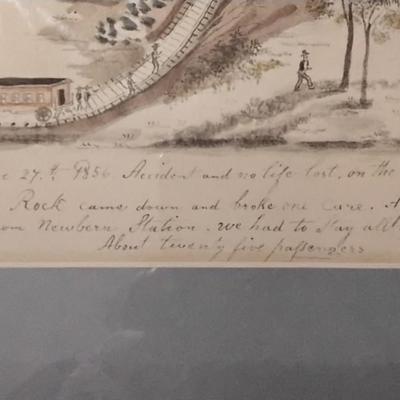 27.th 1856. Accident and no life lost, on the
Rock came down and broke one Care.
Newbern Station. we had to Stay all
About twenty five passengers